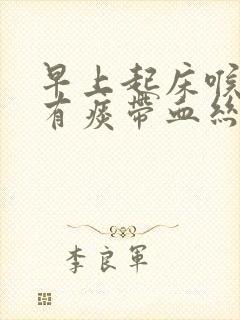 早上起床喉
有痰帶血絲
李良軍